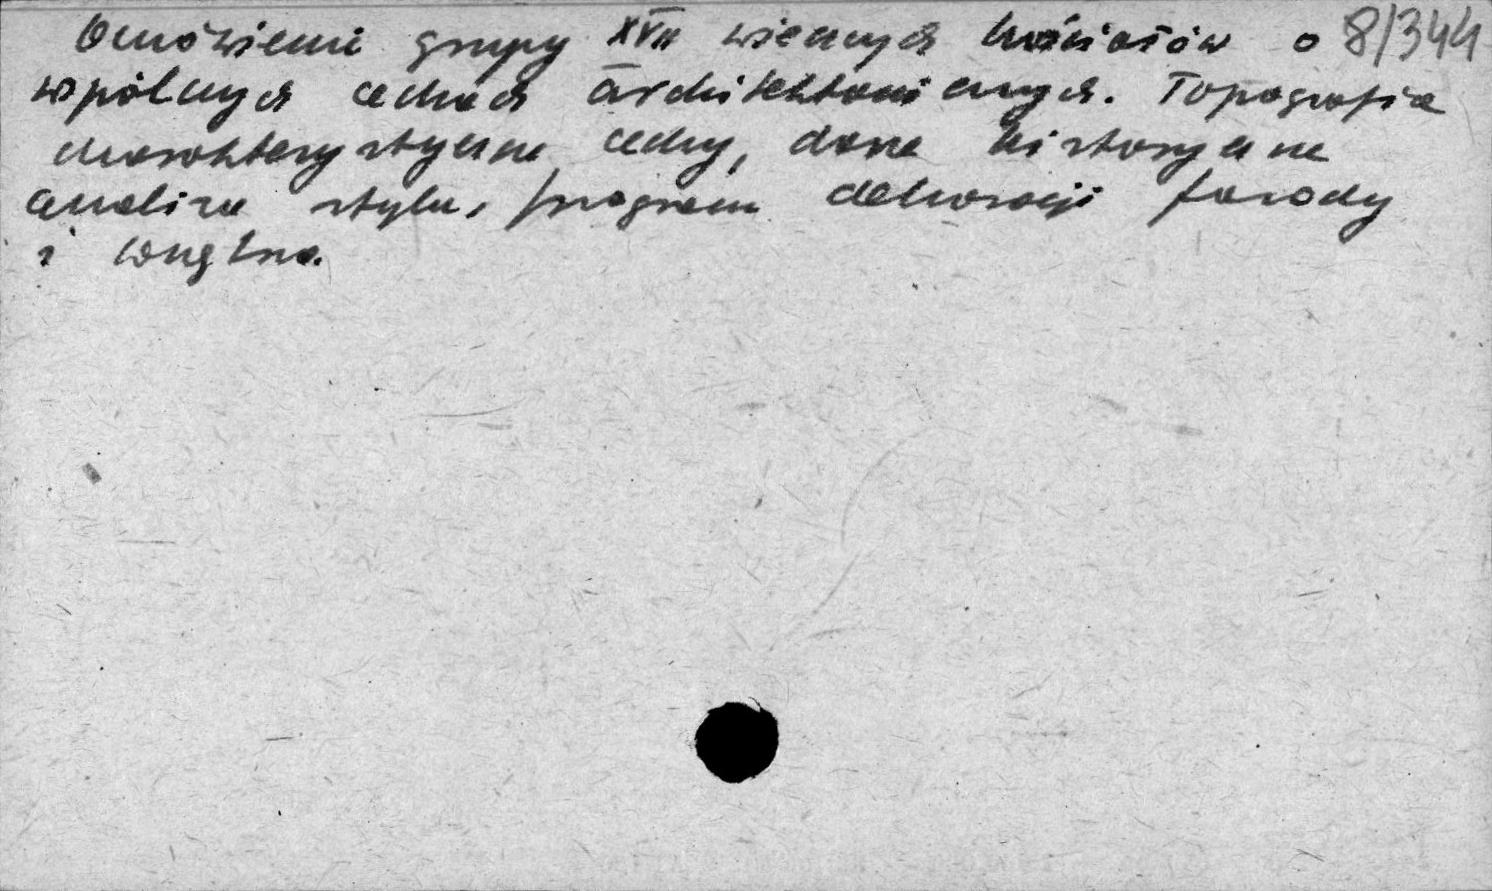 Omówienie grupy XVII wiecznych kościołów o 8/344
wpólnych cechach architektonicznych. Topografia
charakterystyczne cechy, dane historyczne
analiza stylu, program dekoracji fasady
i wnętrza.